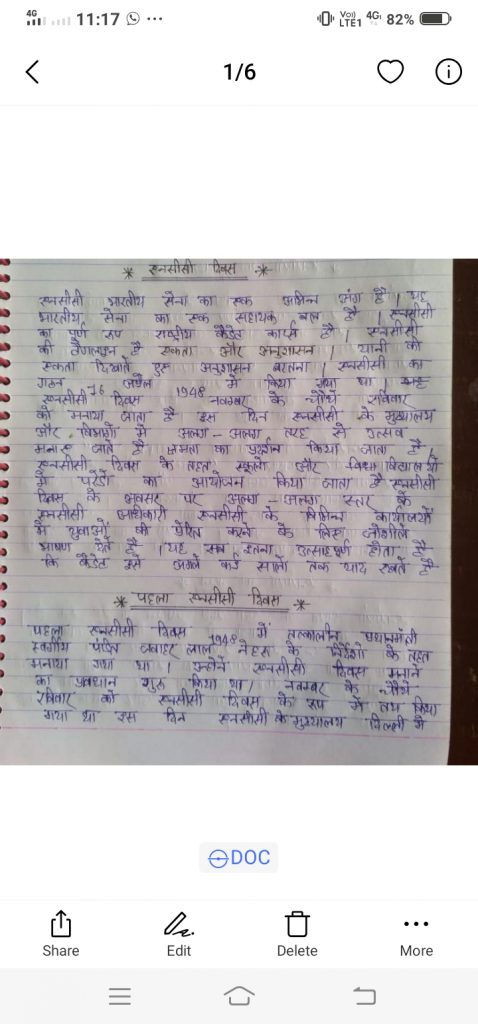 4G 11:17 ... Vo)) LTE1 4G 82%
1/6
* एनसीसी दिवस *
एनसीसी भारतीय सेना का एक अभिन्न अंग है। यह
भारतीय सेना का एक सहायक बल है। एनसीसी
का पूर्ण रूप राष्ट्रीय कैडेट कार्प्स है। एनसीसी
की टैगलाइन है एकता और अनुशासन। यानी की
एकता दिखाते हुए अनुशासन बरतना। एनसीसी का
गठन 16 अप्रैल 1948 में किया गया था।
एनसीसी दिवस नवम्बर के चौथे रविवार
को मनाया जाता है इस दिन एनसीसी के मुख्यालय
और विभागों में अलग-अलग तरह से उत्सव
मनाए जाते है क्षमता का प्रदर्शन किया जाता है।
एनसीसी दिवस के तहत स्कूलो और विश्व विद्यालयों
में परेडों का आयोजन किया जाता है एनसीसी
दिवस के अवसर पर अलग-अलग स्तर के
एनसीसी अधिकारी एनसीसी के विभिन्न कार्यालयों
में युवाओं को प्रेरित करने के लिए जोशीले
भाषण देते है। यह सब इतना उत्साहपूर्ण होता है
कि कैडेट इसे अगले कई सालो तक याद रखते है
* पहला एनसीसी दिवस *
पहला एनसीसी दिवस 1948 में तत्कालीन प्रधानमंत्री
स्वर्गीय पंडित जवाहर लाल नेहरू के निर्देशो के तहत
मनाया गया था। उन्होने एनसीसी दिवस मनाने
का प्रवधान शुरू किया था। नवम्बर के चौथे
रविवार को एनसीसी दिवस के रूप में तय किया
गया था इस दिन एनसीसी के मुख्यालय दिल्ली में
DOC
Share Edit Delete More